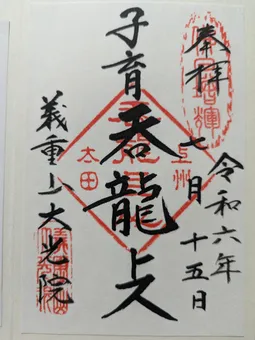 奉拝
令和六年
七月
十五日
子育
呑龍上人
上州
太田
義重山大光院